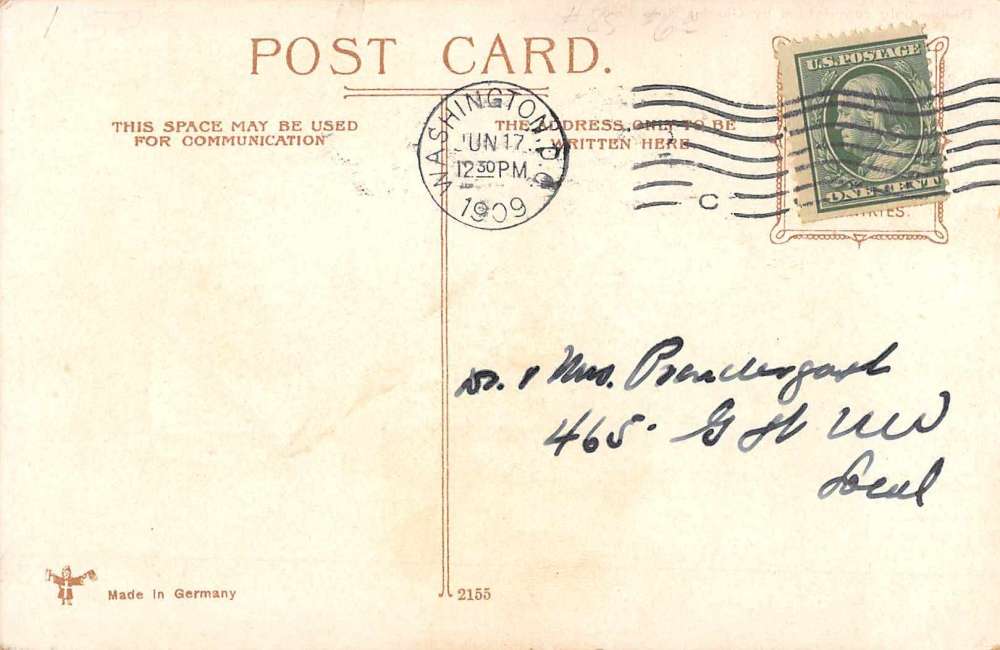 POST CARD.
THIS SPACE MAY BE USED
FOR COMMUNICATION
THE ADDRESS ONLY TO BE
WRITTEN HERE
WASHINGTON, D.C.
JUN 17
12 30 PM
1909
C
U.S. POSTAGE
ONE CENT
Dr. & Mrs. Prendergast
465 G St NW
Local
Made in Germany
2155